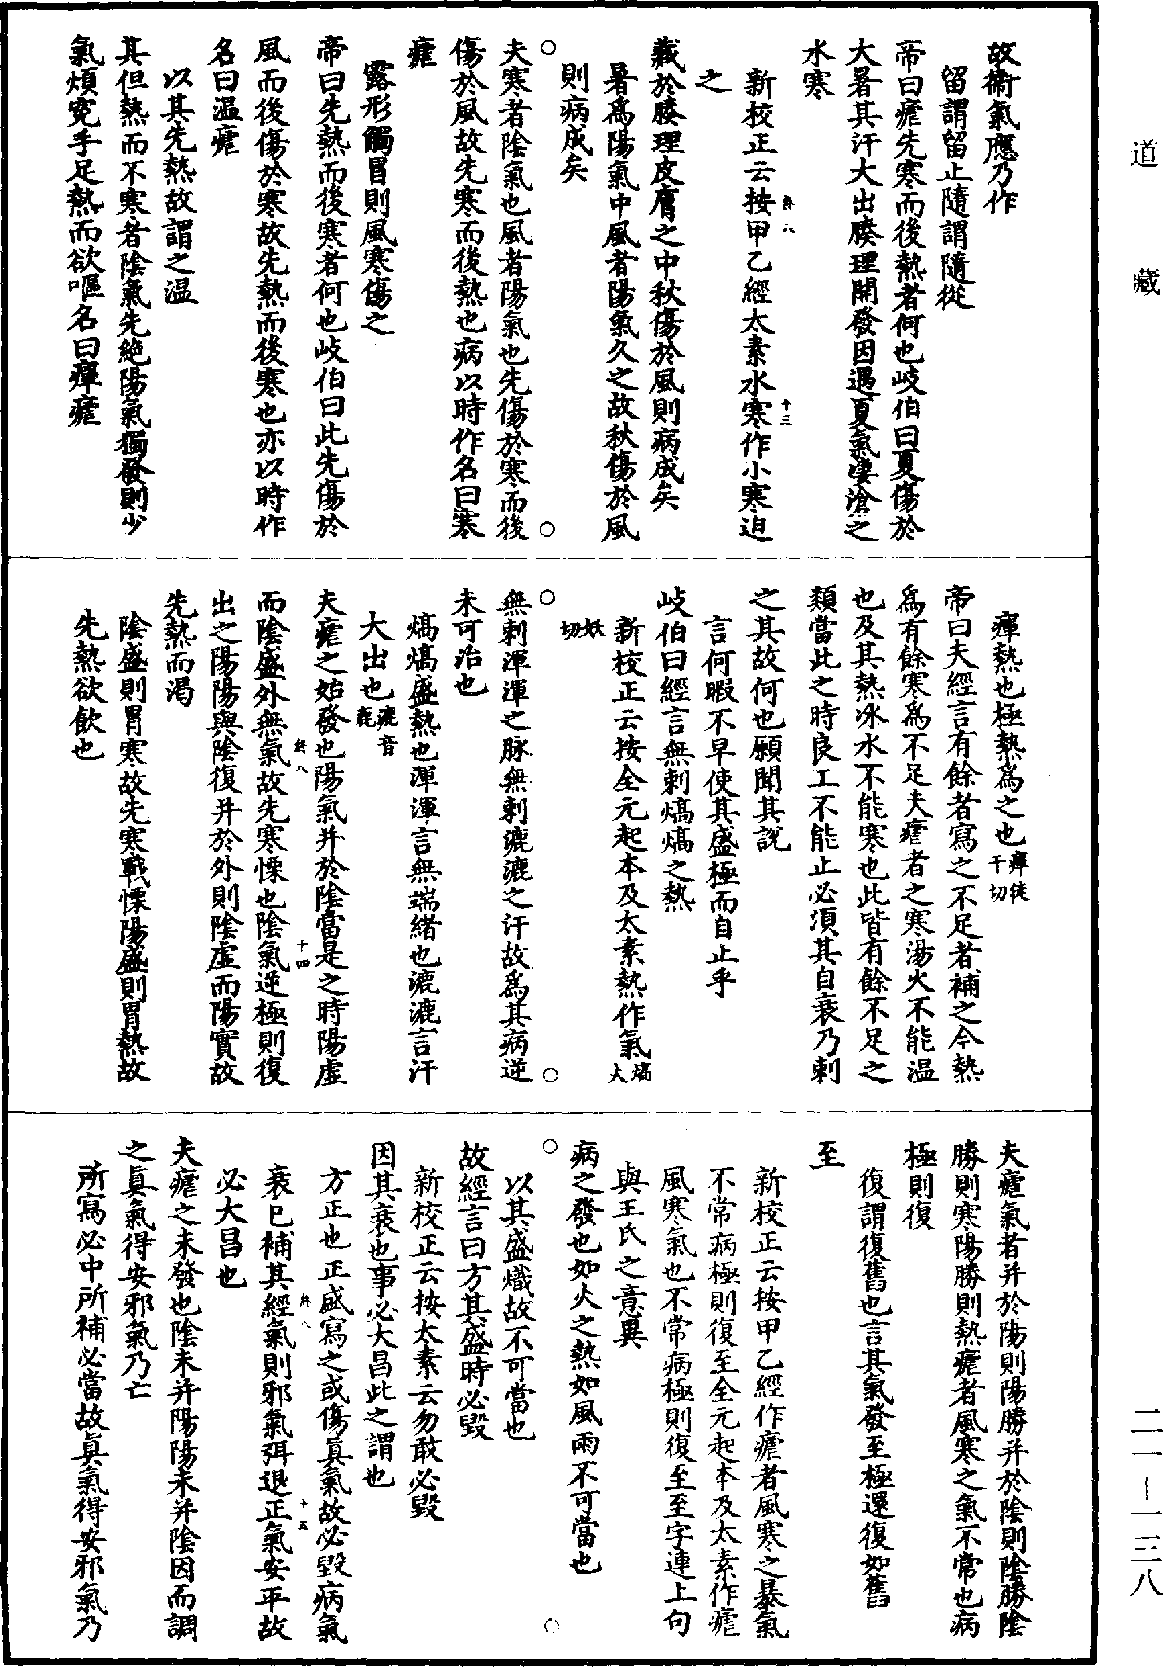 道藏
故衞氣應乃作
留謂留止隨謂隨從
帝曰瘧先寒而後熱者何也岐伯曰夏傷於
大暑其汗大出腠理開發因遇夏氣淒滄之
水寒
新校正云按甲乙經太素水寒作小寒迫
之
藏於腠理皮膚之中秋傷於風則病成矣
暑爲陽氣中風者陽氣久之故秋傷於風
則病成矣
夫寒者陰氣也風者陽氣也先傷於寒而後
傷於風故先寒而後熱也病以時作名曰寒
瘧
露形觸冒則風寒傷之
帝曰先熱而後寒者何也岐伯曰此先傷於
風而後傷於寒故先熱而後寒也亦以時作
名曰温瘧
以其先熱故謂之温
其但熱而不寒者陰氣先絶陽氣獨發則少
氣煩寃手足熱而欲嘔名曰癉瘧
癉熱也極熱爲之也癉徒干切
帝曰夫經言有餘者寫之不足者補之今熱
爲有餘寒爲不足夫瘧者之寒湯火不能温
也及其熱冰水不能寒也此皆有餘不足之
類當此之時良工不能止必須其自衰乃刺
之其故何也願聞其説
言何暇不早使其盛極而自止乎
岐伯曰經言無刺熇熇之熱
新校正云按全元起本及太素熱作氣熇火
妖切
無刺渾渾之脉無刺漉漉之汗故爲其病逆
未可治也
熇熇盛熱也渾渾言無端緒也漉漉言汗
大出也漉音鹿
夫瘧之始發也陽氣并於陰當是之時陽虛
而陰盛外無氣故先寒慄也陰氣逆極則復
出之陽陽與陰復并於外則陰虛而陽實故
先熱而渴
陰盛則胃寒故先寒戰慄陽盛則胃熱故
先熱欲飲也
夫瘧氣者并於陽則陽勝并於陰則陰勝陰
勝則寒陽勝則熱瘧者風寒之氣不常也病
極則復
復謂復舊也言其氣發至極還復如舊
至
新校正云按甲乙經作瘧者風寒之暴氣
不常病極則復至全元起本及太素作瘧
風寒氣也不常病極則復至至字連上句
與王氏之意異
病之發也如火之熱如風雨不可當也
以其盛熾故不可當也
故經言曰方其盛時必毀
新校正云按太素云勿敢必毀
因其衰也事必大昌此之謂也
方正也正盛寫之或傷眞氣故必毀病氣
衰已補其經氣則邪氣弭退正氣安平故
必大昌也
夫瘧之未發也陰未并陽陽未并陰因而調
之眞氣得安邪氣乃亡
所寫必中所補必當故眞氣得安邪氣乃
二一－一三八